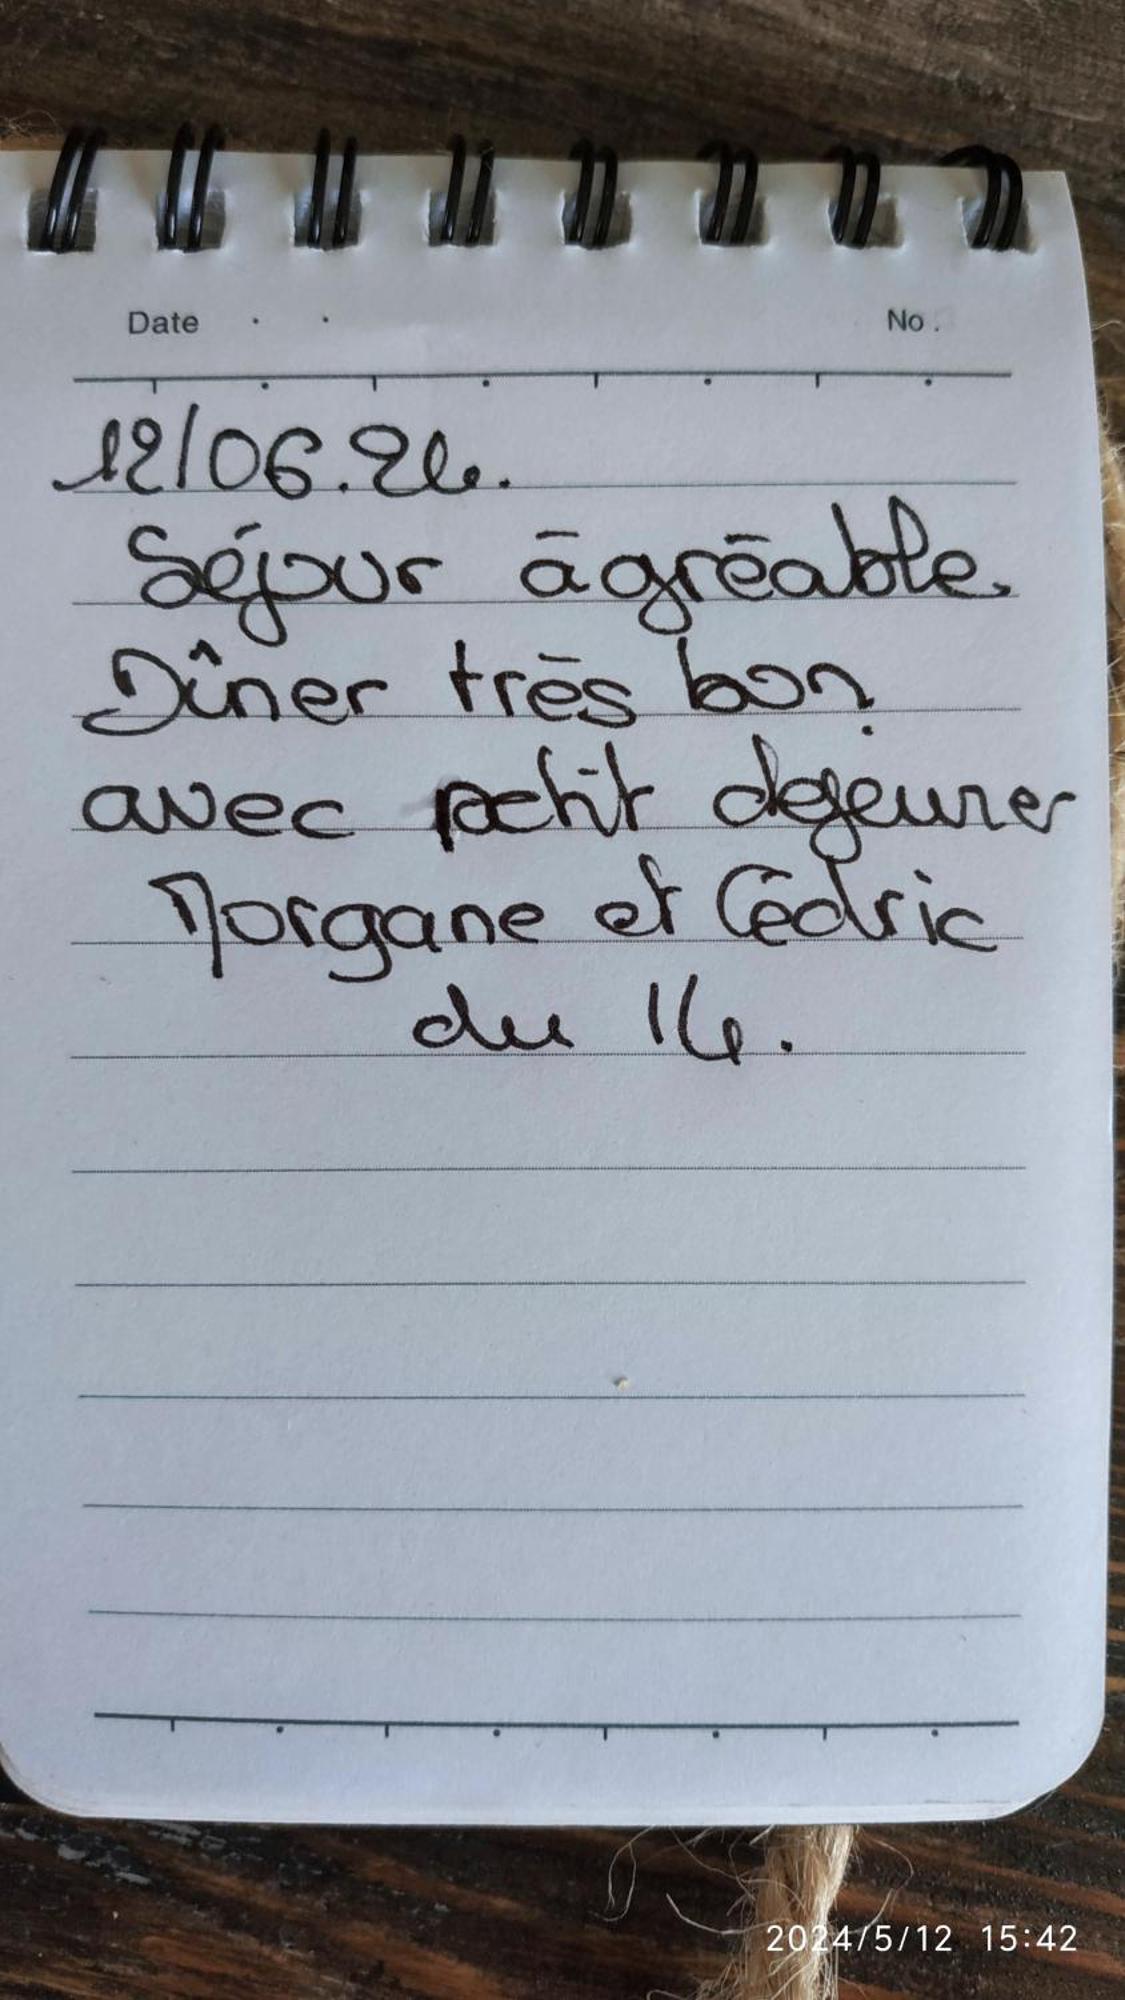 Date . . No.
12/06.24.
Séjour āgrēable.
Dîner très bon.
avec petit dejeuner
Morgane et Cēdric
du 14.
2024/5/12 15:42